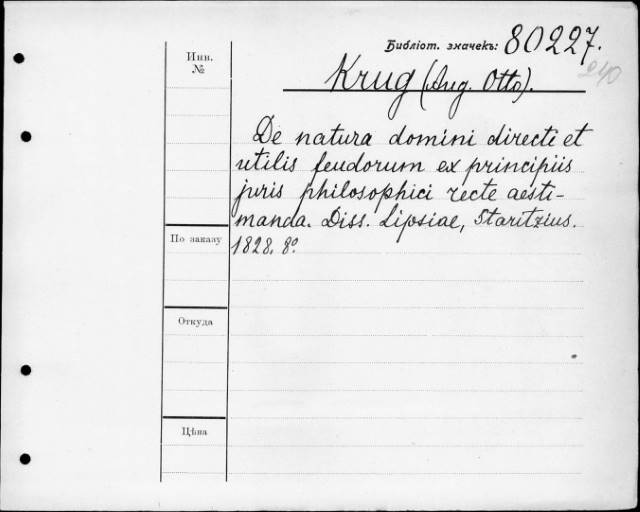 Библіот. значекъ: 80227.
240
Krug (Aug. Otto).
Инв.
№
De natura domini directi et
utilis feudorum ex principiis
juris philosophici recte aesti-
manda. Diss. Lipsiae, Staritzius.
1828. 8º
По заказу
Откуда
Цѣна